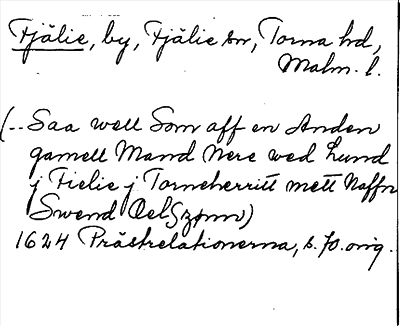 Fjälie, by, Fjälie sn, Torna hd,
Malm. l.
(.. Saa well Som aff en Anden
gamell Mand Nere wed Lund
j Fielie j Torneherritt mett Naffn
Swend Oelszønn)
1624 Prästrelationerna, s. 70. orig.